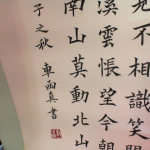 見不相識笑問
溪雲悵望今朝
南山莫動北山
子之秋 車雨真書